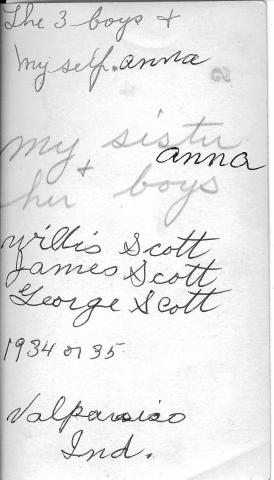 The 3 boys +
my self. anna
my sister
anna
+
her boys
Willis Scott
James Scott
George Scott
1934 or 35
Valparaiso
Ind.